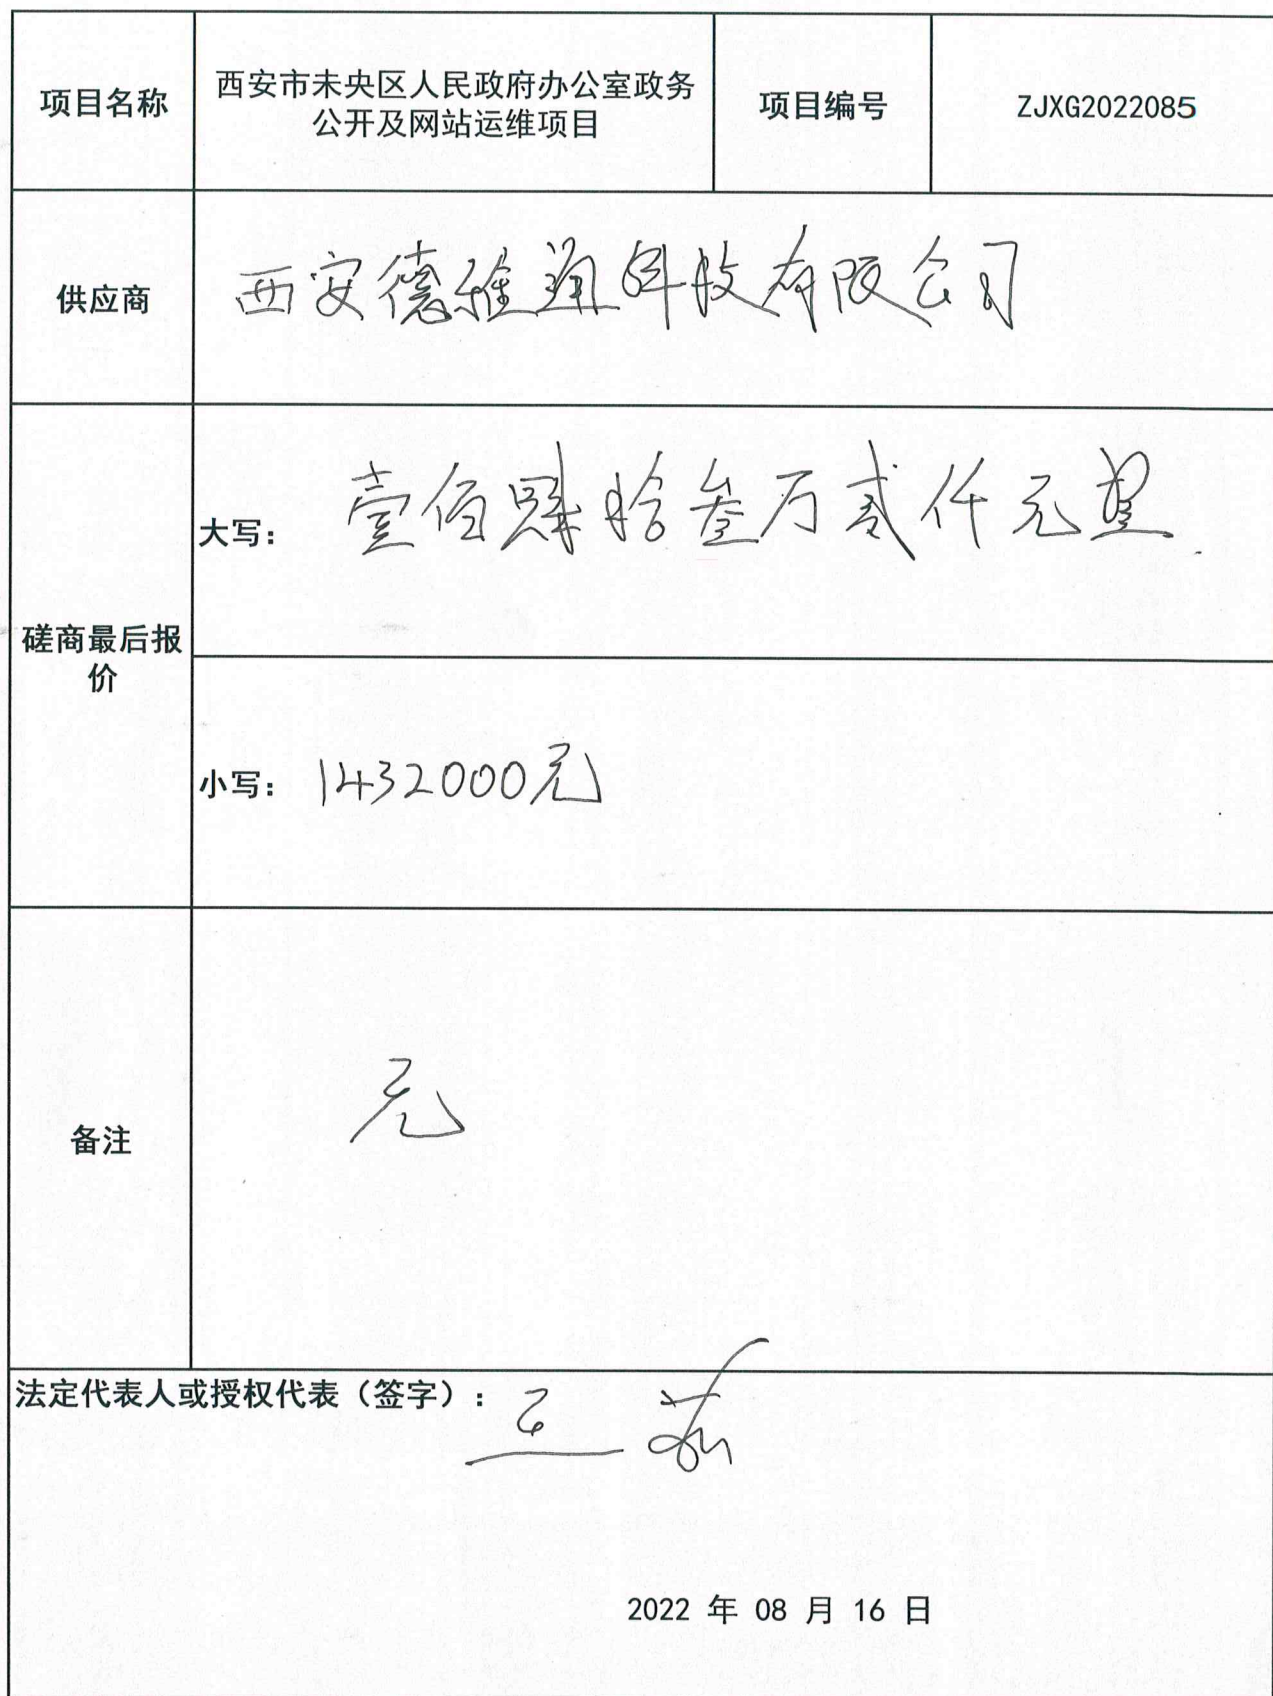 项目名称
西安市未央区人民政府办公室政务
公开及网站运维项目
项目编号
ZJXG2022085
供应商
西安德雅通科技有限公司
大写：
壹佰肆拾叁万贰仟元整
磋商最后报
价
小写：
1432000元
备注
无
法定代表人或授权代表（签字）：
王
2022 年 08 月 16 日